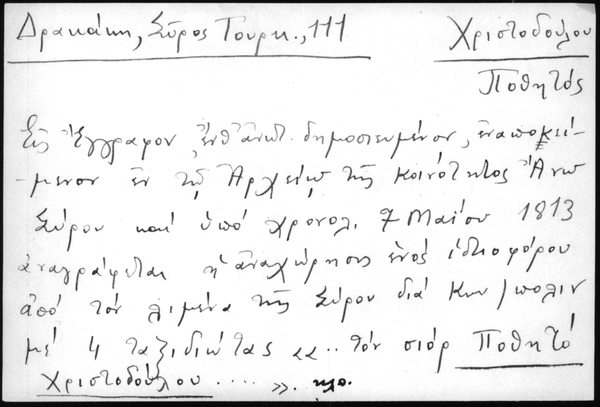 Δρακάκη, Σῦρος Τουρκ., 111
Χριστοδούλου
Ποθητός
Εἰς Ἔγγραφον, ἐνθ' ἀνωτ. δημοσιευμένον, ἐναποκεί-
-μενον ἐν τῷ Ἀρχείῳ τῆς κοινότητος Ἄνω
Σύρου καί ὑπό χρονολ. 7 Μαΐου 1813
ἀναγράφεται ἡ ἀναχώρησις ἑνός ἰδιοφόρου
ἀπό τόν λιμένα τῆς Σύρου διά Κων/πολιν
μέ 4 ταξιδιώτας «... τόν σιόρ Ποθητό
Χριστοδούλου .... ». κλπ.